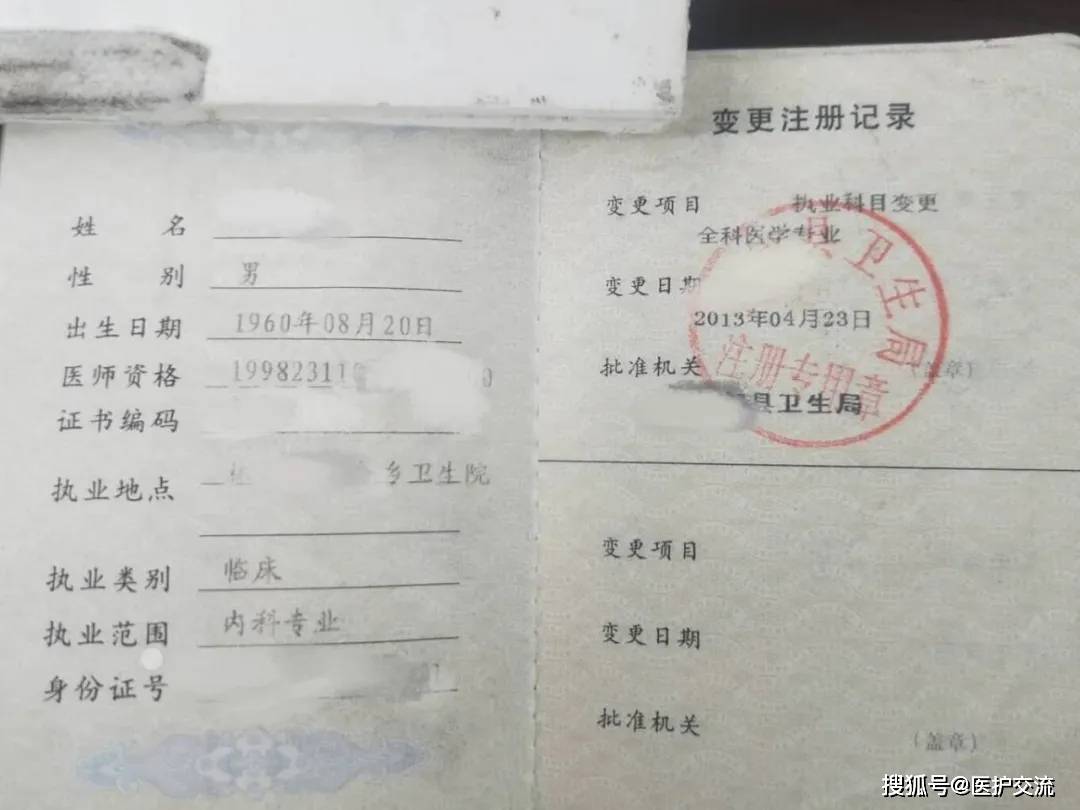 姓名
性别 男
出生日期 1960年08月20日
医师资格 19982311
证书编码
执业地点 乡卫生院
执业类别 临床
执业范围 内科专业
身份证号
变更注册记录
变更项目 执业科目变更
全科医学专业
变更日期
2013年04月23日
批准机关 (盖章)
县卫生局
县卫生局
注册专用章
变更项目
变更日期
批准机关
(盖章)
搜狐号@医护交流